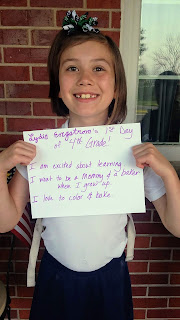 Lydia Engstrom's 1st Day
of 4th Grade!
I am excited about learning.
I want to be a Mommy & a baker
when I grow up.
I love to color & bake.